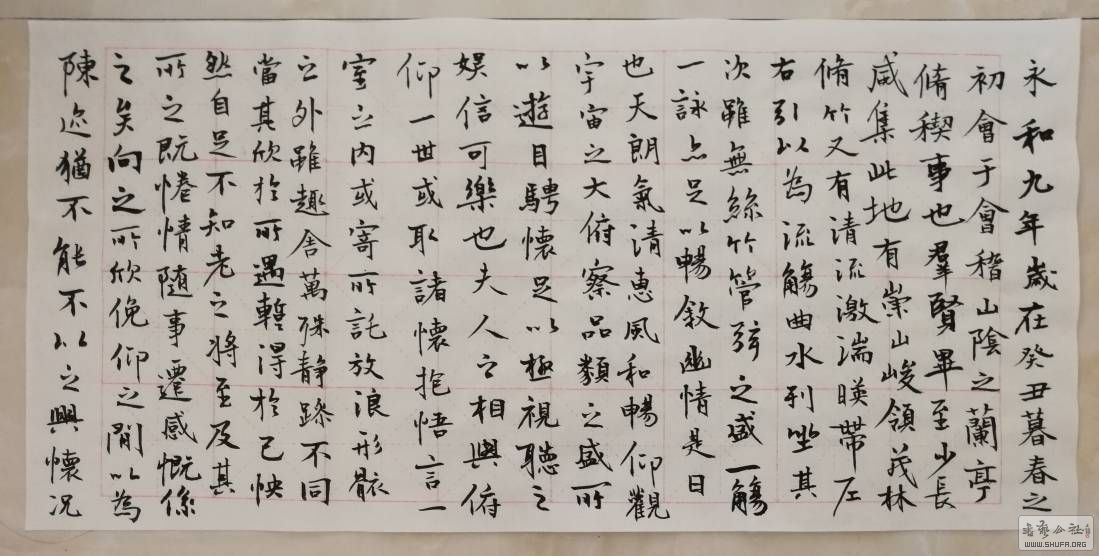 永和九年歲在癸丑暮春之
初會于會稽山陰之蘭亭
脩稧事也羣賢畢至少長
咸集此地有崇山峻領茂林
脩竹又有清流激湍暎帶左
右引以為流觴曲水列坐其
次雖無絲竹管弦之盛一觴
一詠亦足以暢敘幽情是日
也天朗氣清惠風和暢仰觀
宇宙之大俯察品類之盛所
以遊目騁懷足以極視聽之
娛信可樂也夫人之相與俯
仰一世或取諸懷抱悟言一
室之內或寄所託放浪形骸
之外雖趣舍萬殊静躁不同
當其欣於所遇蹔得於己怏
然自足不知老之將至及其
所之既惓情隨事遷感慨係
之矣向之所欣俛仰之閒以為
陳迹猶不能不以之興懷況
書藝公社
WWW.SHUFA.ORG